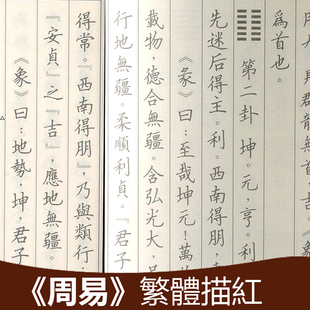 爲首也。
第二卦 坤。元，亨。利
先迷后得主。利。西南得朋，
《彖》曰：至哉坤元！萬
載物，德合無疆。含弘光大，
行地無疆。柔順利貞。『君子
得常。『西南得朋』，乃與類行，
『安貞』之『吉』，應地無疆。
《象》曰：地勢，坤，君子
《周易》繁體描紅